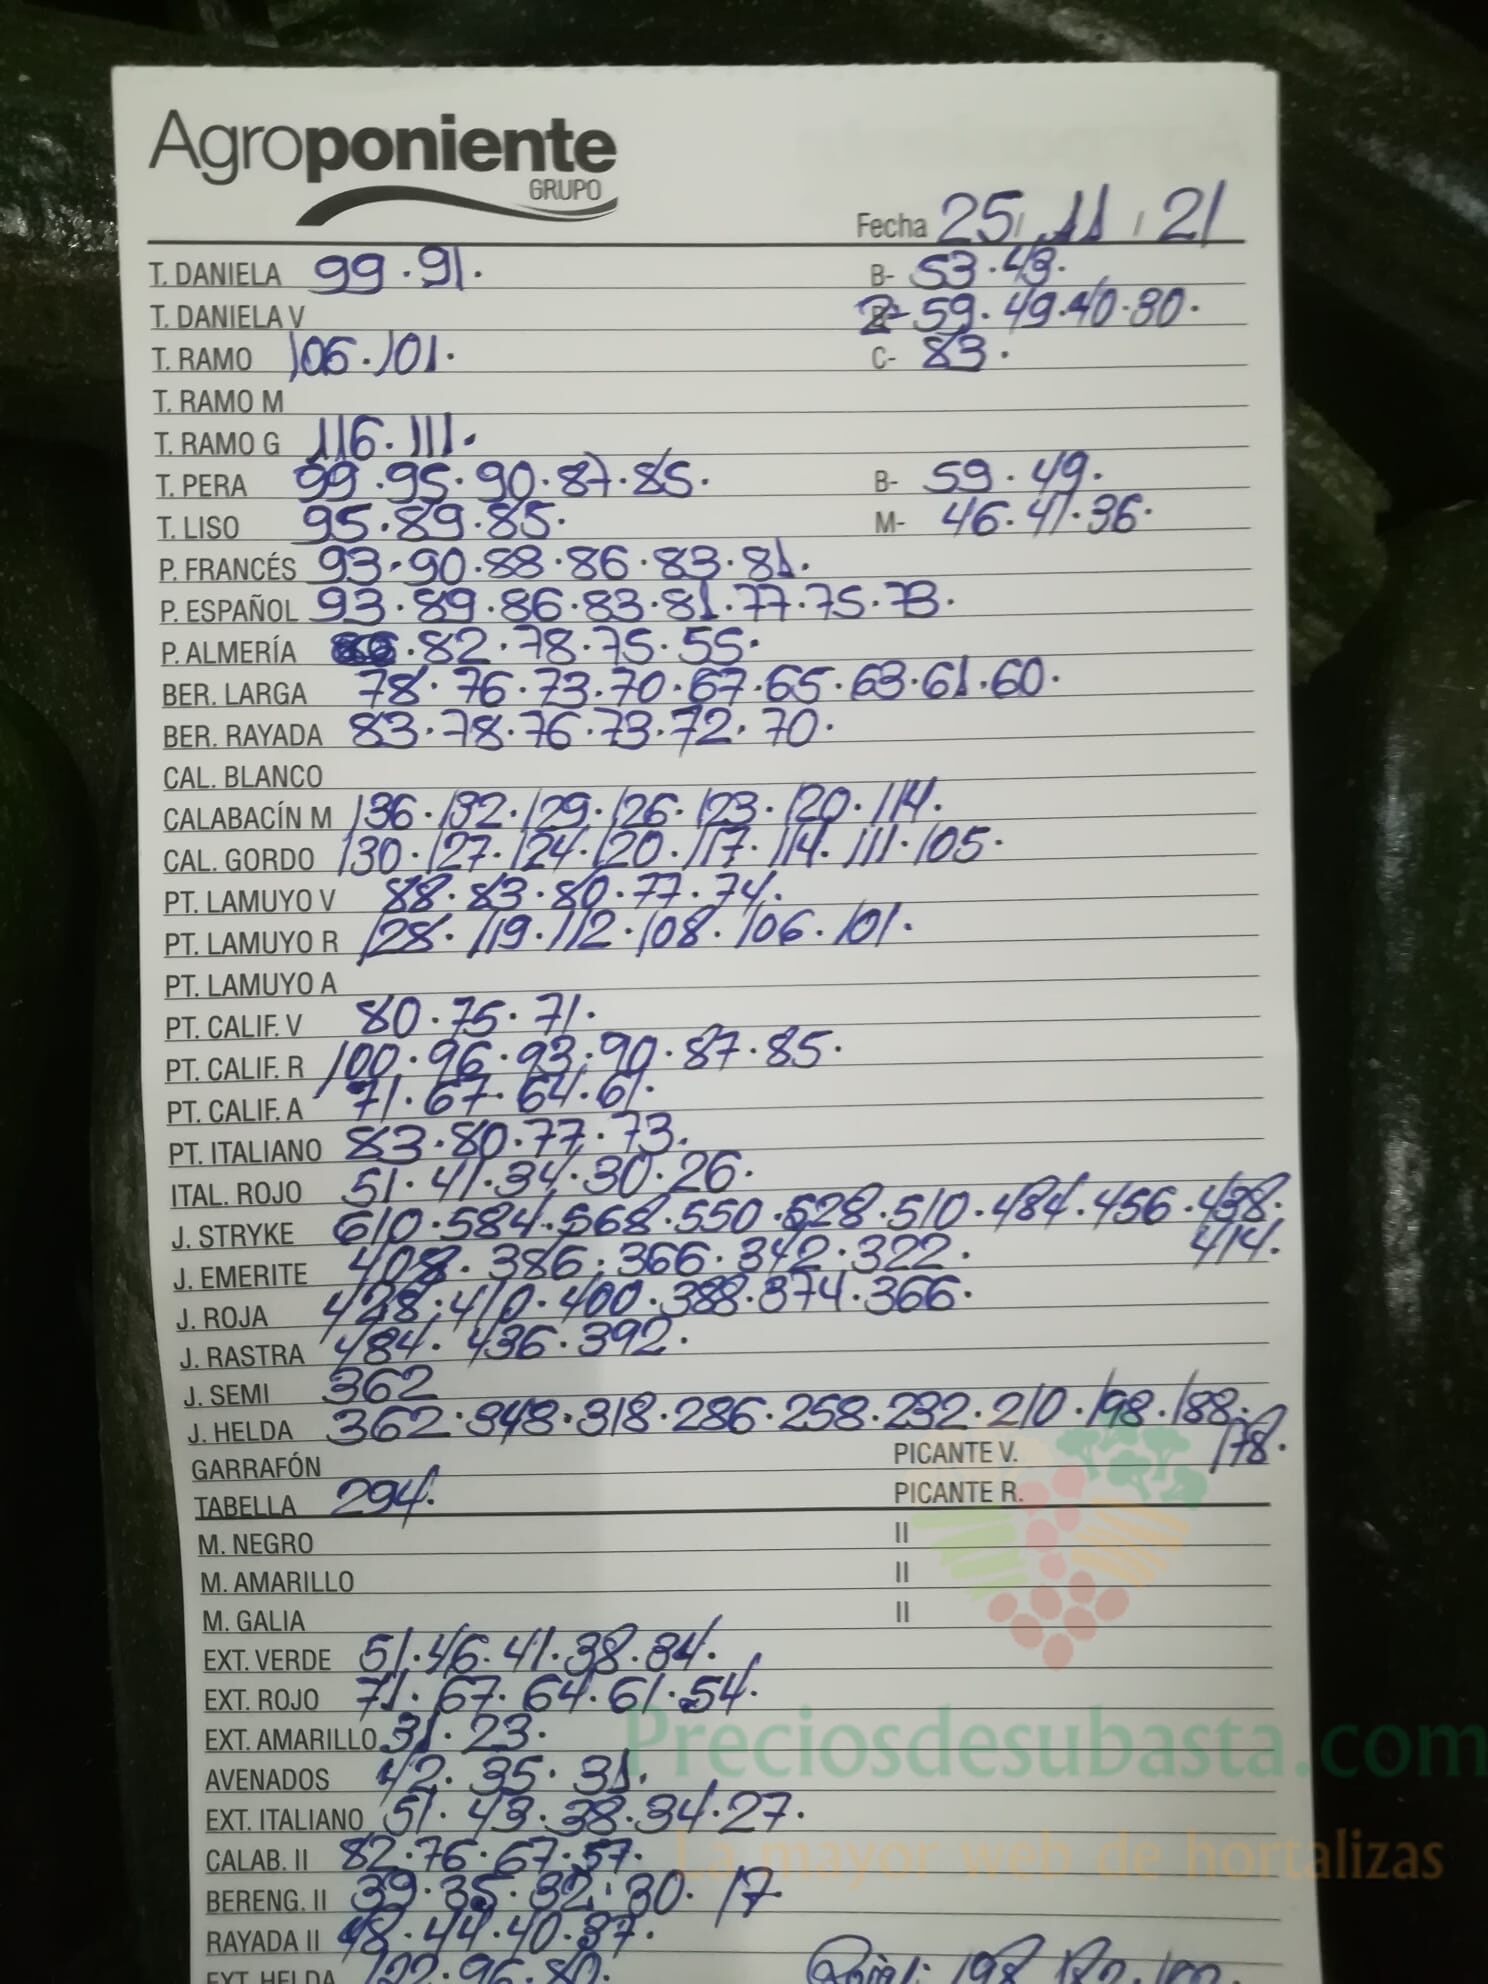 Agroponiente
GRUPO
Fecha 25 / 11 / 21
T. DANIELA 99.91. B- 53.43.
T. DANIELA V 2- 59.49.40.30.
T. RAMO 106.101. C- 83.
T. RAMO M
T. RAMO G 116.111.
T. PERA 99.95.90.87.85. B- 59.49.
T. LISO 95.89.85. M- 46.41.36.
P. FRANCÉS 93.90.88.86.83.81.
P. ESPAÑOL 93.89.86.83.81.77.75.73.
P. ALMERÍA 86.82.78.75.55.
BER. LARGA 78.76.73.70.67.65.63.61.60.
BER. RAYADA 83.78.76.73.72.70.
CAL. BLANCO
CALABACÍN M 136.132.129.126.123.120.114.
CAL. GORDO 130.127.124.120.117.114.111.105.
PT. LAMUYO V 88.83.80.77.74.
PT. LAMUYO R 128.119.112.108.106.101.
PT. LAMUYO A
PT. CALIF. V 80.75.71.
PT. CALIF. R 100.96.93.90.87.85.
PT. CALIF. A 71.67.64.61.
PT. ITALIANO 83.80.77.73.
ITAL. ROJO 51.41.34.30.26.
J. STRYKE 610.584.568.550.528.510.484.456.438.
414.
J. EMERITE 408.386.366.342.322.
J. ROJA 428.410.400.388.374.366.
J. RASTRA 484.436.392.
J. SEMI 362
J. HELDA 362.348.318.286.258.232.210.198.188.
178.
GARRAFÓN PICANTE V.
TABELLA 294. PICANTE R.
M. NEGRO II
M. AMARILLO II
M. GALIA II
EXT. VERDE 51.46.41.38.34.
EXT. ROJO 71.67.64.61.54.
EXT. AMARILLO 31.23.
Preciosdesubasta.com
AVENADOS 42.35.31.
EXT. ITALIANO 51.43.38.34.27.
La mayor web de hortalizas
CALAB. II 82.76.67.57.
BERENG. II 39.35.32.30.17
RAYADA II 48.44.40.37.
EXT. HELDA 122.96.80.